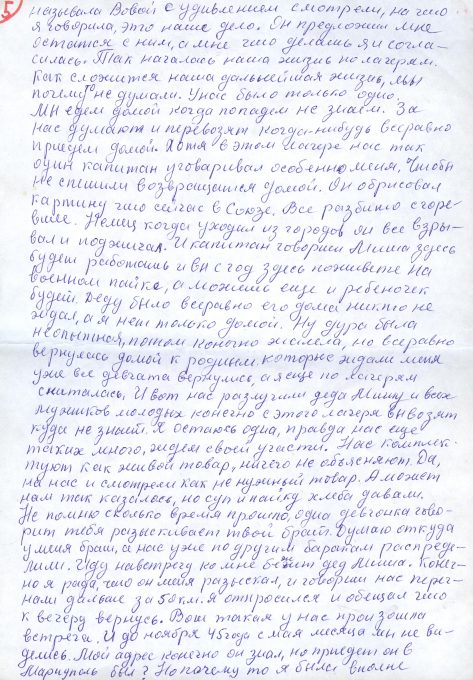 5
называла Вовой с удивлением смотрели, но что
я говорила, это наше дело. Он предложил мне
остаться с ним, а мне что делать я и согла-
силась. Так началась наша жизнь по лагерям.
Как сложится наша дальнейшая жизнь, мы
почему то не думали. У нас было только одно.
Мы едем домой когда попадем не знаем. За
нас думают и перевозят когда-нибудь всеравно
приедем домой. Хотя в этом лагере нас так
один капитан уговаривал особенно меня, чтобы
не спешили возвращаться домой. Он обрисовал
картину что сейчас в Союзе. Все разбито сгоре-
вшее. Немец когда уходил из городов он все взры-
вал и поджигал. И капитан говорил Миша здесь
будет работать и вы с год здесь поживете на
военном пайке, а может еще и ребеночек
будет. Деду было всеравно его дома никто не
ждал, а я нет только домой. Ну дура была
неопытная, потом конечно жалела, но всеравно
вернулась домой к родным которые ждали меня
уже все девчата вернулись, а я еще по лагерям
скиталась. И вот нас разлучили деда Мишу и всех
мужиков молодых конечно с этого лагеря вывозят
куда не знаем. Я остаюсь одна, правда нас еще
таких много, ждем своей участи. Нас комплек-
туют как живой товар, ничего не объясняют. Да,
на нас и смотрели как не нужный товар. А может
нам так казалось, но суп и пайку хлеба давали.
Не помню сколько время прошло, одна девчонка гово-
рит тебя разыскивает твой брат. Думаю откуда
у меня брат, а нас уже по другим баракам распреде-
лили. Иду навстречу ко мне бежит дед Миша. Конеч-
но я рада, что он меня разыскал, и говорит нас перег-
нали дальше за 50км. Я отпросился и обещал что
к вечеру вернусь. Вот такая у нас произошла
встреча. И до ноября 45 года с мая месяца мы не ви-
делись. Мой адрес конечно он знал, но приедет он в
Мариуполь был? Но почему то я была вполне